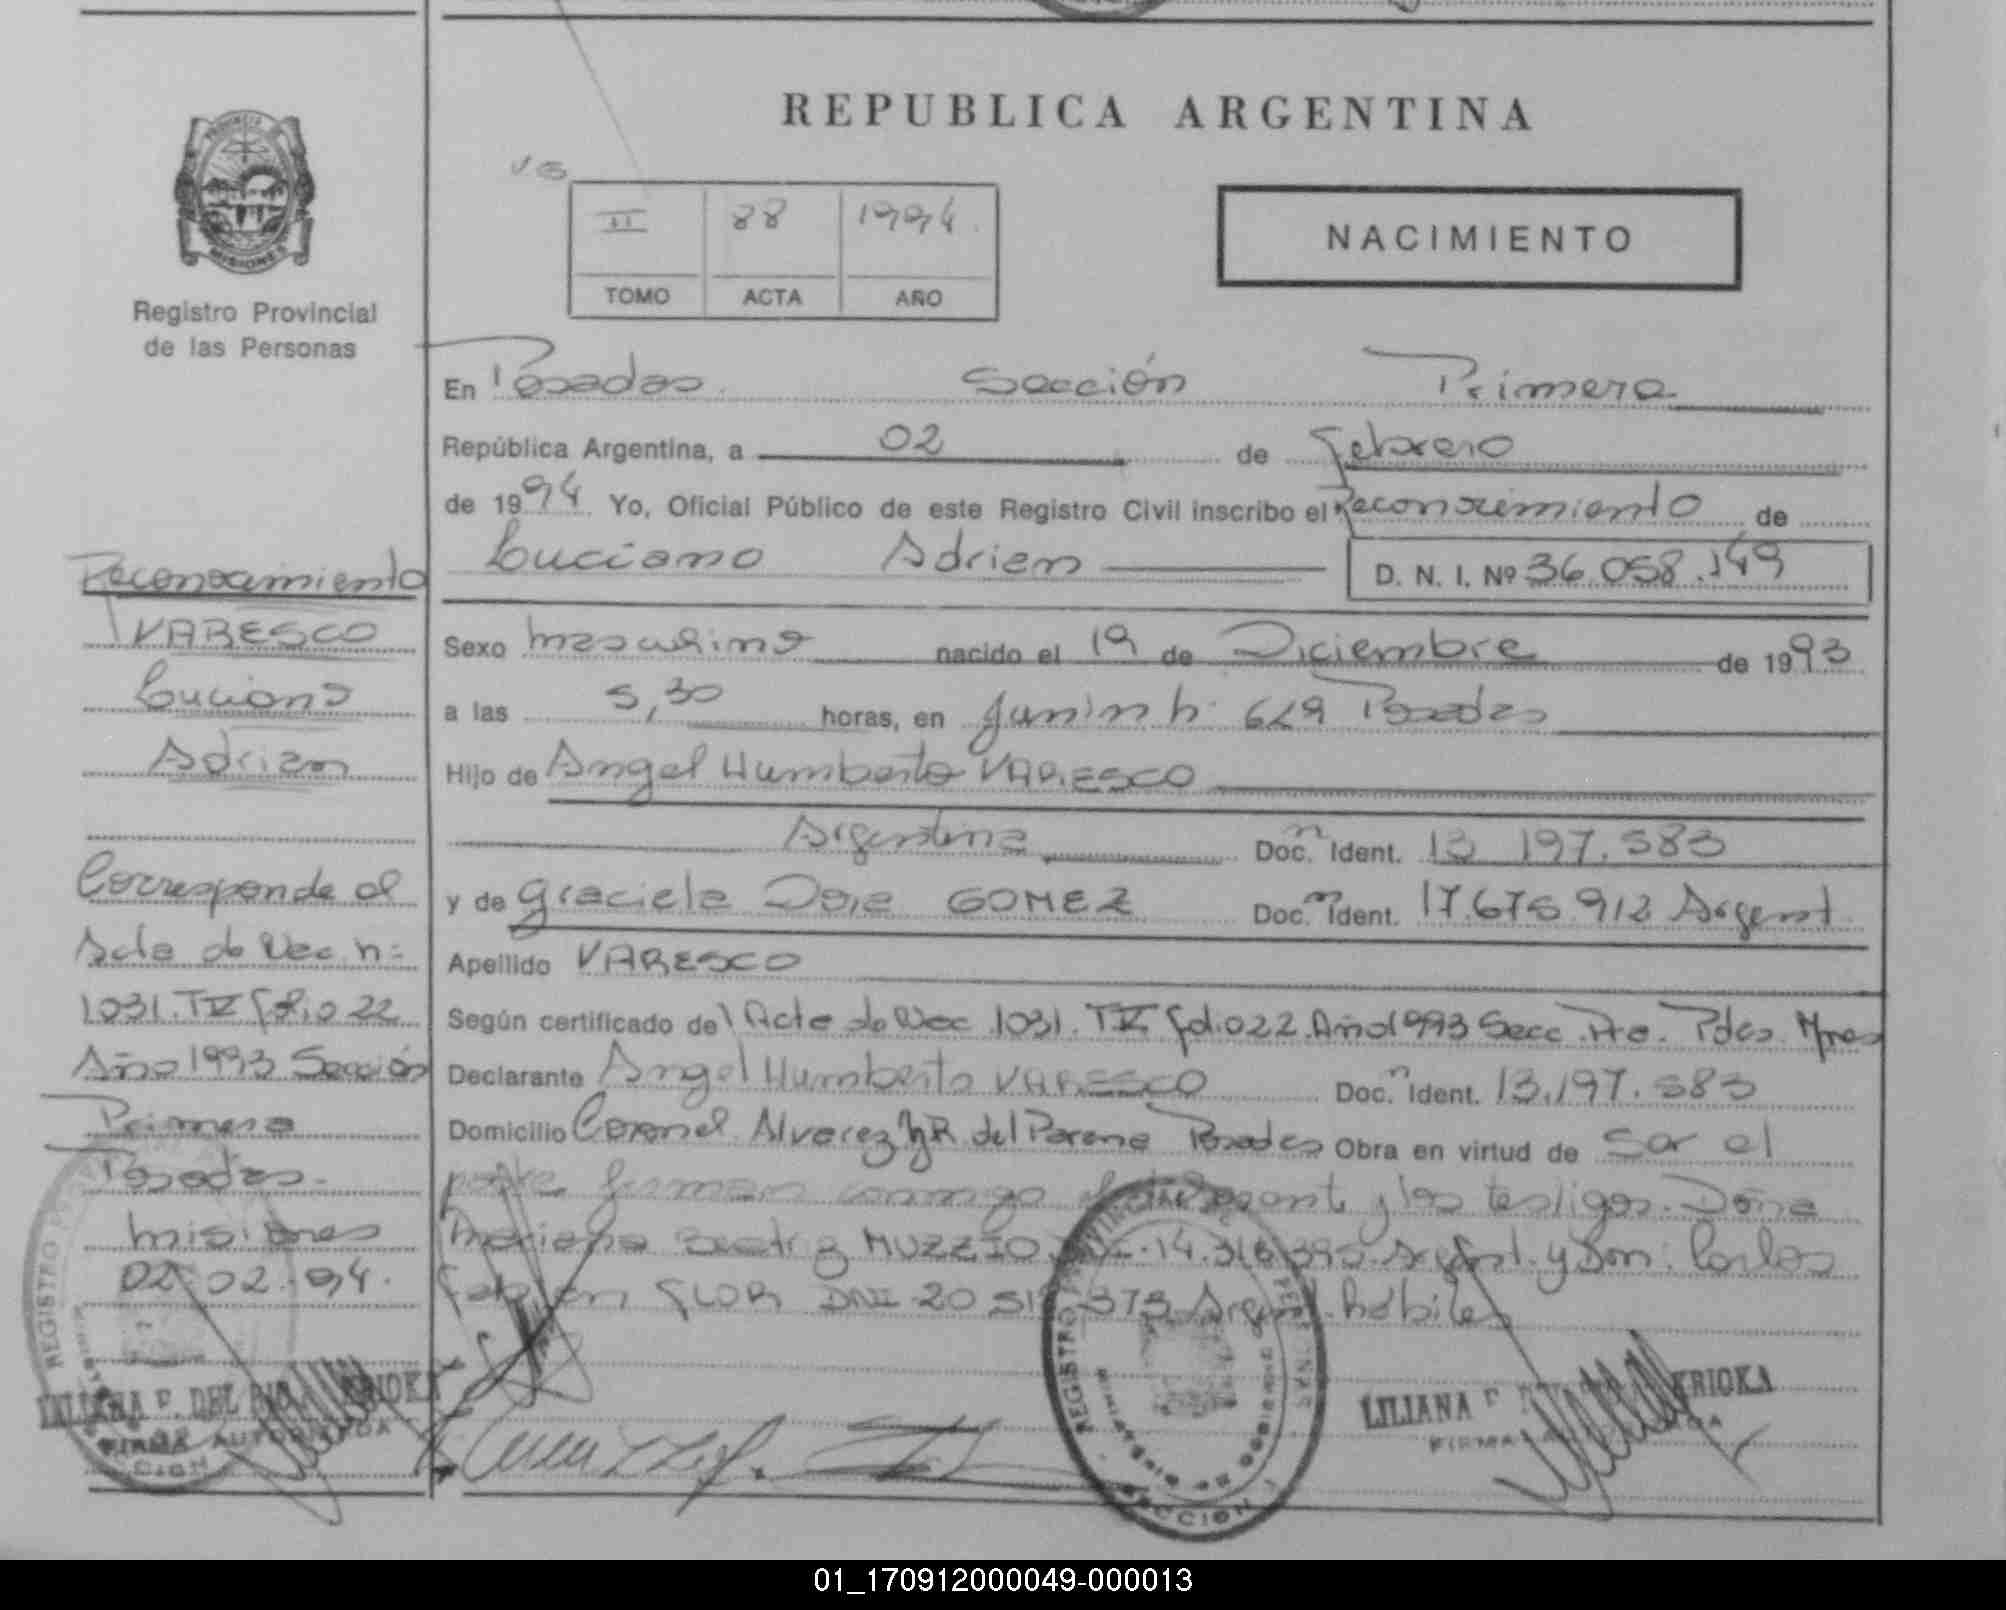 REPUBLICA ARGENTINA
PROVINCIA
MISIONES
Registro Provincial
de las Personas
II 88 1994
TOMO ACTA AÑO
NACIMIENTO
En Posadas Sección Primera
República Argentina, a 02 de Febrero
de 1994 Yo, Oficial Público de este Registro Civil inscribo el Reconocimiento de
Luciano Adrian D. N. I. Nº 36.058.149
Sexo masculino nacido el 19 de Diciembre de 1993
a las 5,30 horas, en Junin n 629 Posadas
Hijo de Angel Humberto VARESCO
Argentina Doc.n Ident. 13 197.583
y de Graciela GOMEZ Doc.n Ident. 17.675.912 Argent.
Apellido VARESCO
Según certificado de Acta de Nac 1031. T IV folio 22. Año 1993 Secc. Pra. Pdas. Mnes
Declarante Angel Humberto VARESCO Doc.n Ident. 13.197.583
Domicilio Coronel Alvarez y R. del Parana Posadas Obra en virtud de Ser el
padre firman conmigo el y los testigos. Doña
Mariana Beatriz MUZZIO 14.316.390. Argent. y Don: Carlos
Fabian FLOR DNI 20 373 Argent. habiles
Reconocimiento
VARESCO
Luciano
Adrian
Corresponde al
Acta de Nac n:
1031. T IV folio 22
Año 1993 Sección
Primera
Posadas.
Misiones
02-02-94.
LILIANA F. DEL
FIRMA AUTORIZADA
REGISTRO PROVINCIAL DE LAS PERSONAS
SECCION 1
LILIANA F.
FIRMA
01_170912000049-000013